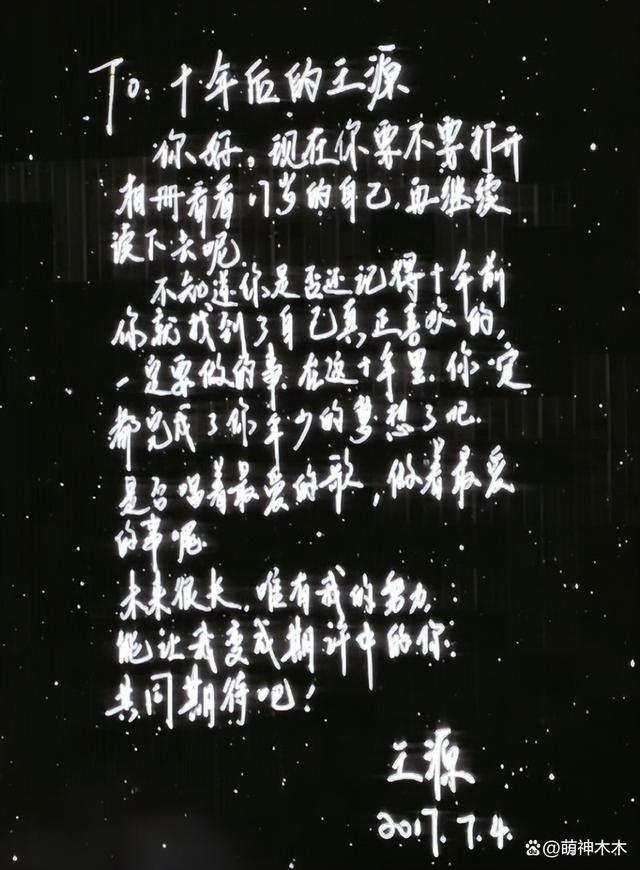 To: 十年后的王源
你好，现在你要不要打开
相册看看17岁的自己，再继续
读下去呢
不知道你是否还记得十年前
你就找到了自己真正喜欢的，
一定要做的事.在这十年里.你一定
都完成了你年少的梦想了吧.
是否唱着最爱的歌，做着最爱
的事呢.
未来很长，唯有我的努力，
能让我变成期许中的你.
共同期待吧！
王源
2017.7.4.
@萌神木木